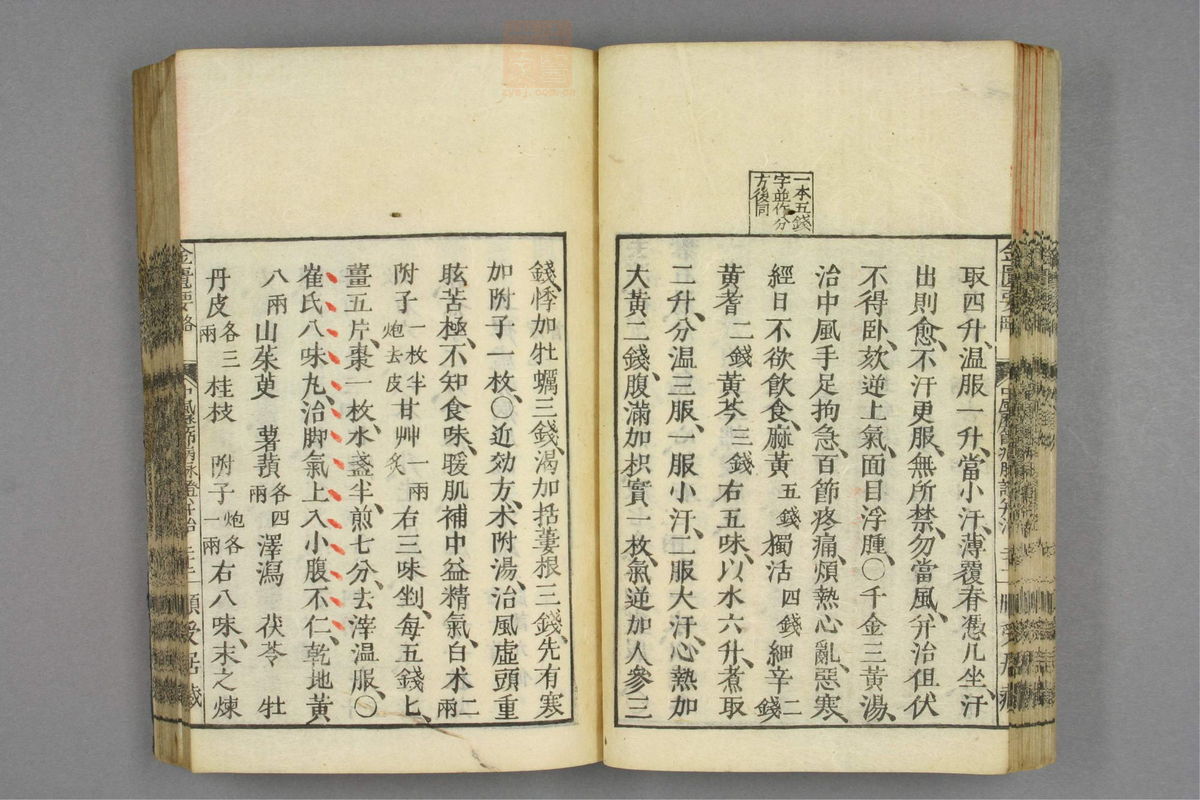 一本五錢
字並作分
方後同
取四升、温服一升、當小汗、薄覆脊憑几坐、汗
出則愈、不汗更服、無所禁、勿當風、并治但伏
不得卧、欬逆上氣、面目浮腫、〇千金三黄湯、
治中風手足拘急、百節疼痛、煩熱心亂、惡寒、
經日不欲飲食、麻黄五錢獨活四錢細辛二錢
黄耆二錢黄芩三錢右五味、以水六升、煮取
二升、分温三服、一服小汗、二服大汗、心熱加
大黄二錢、腹滿加枳實一枚、氣逆加人參三
錢、悸加牡蠣三錢、渴加括蔞根三錢、先有寒
加附子一枚、〇近効方、术附湯、治風虛頭重
眩苦極、不知食味、暖肌補中益精氣、白术二兩
附子一枚半炮去皮甘艸一兩炙右三味剉、每五錢匕、
薑五片、棗一枚、水盞半、煎七分、去滓温服、〇
崔氏八味丸、治脚氣上入小腹不仁、乾地黄
八兩山茱萸 薯蕷各四兩澤瀉 茯苓 牡
丹皮各三兩桂枝 附子炮各一兩右八味、末之煉
金匱要略